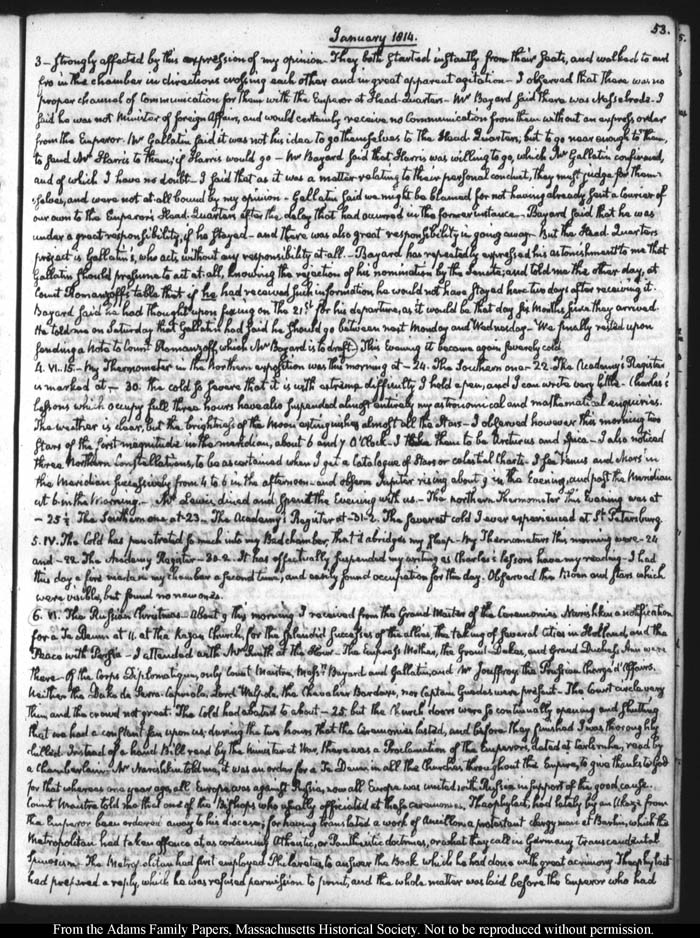 January 1814.
53.
3 - Strongly affected by this expression of my opinion - They both started instantly from their Seats, and walked to and
fro in the chamber in directions crossing each other and in great apparent agitation - I observed that there was no
proper channel of Communication for them with the Emperor at Head-Quarters - Mr Bayard said there was Nesselrode - I
said he was not Minister of foreign Affairs, and would certainly receive no Communication from them without an express order
from the Emperor. Mr Gallatin said it was not his idea to go themselves to the Head Quarters, but to go near enough to them,
to send Mr Harris to them; if Harris would go - Mr Bayard said that Harris was willing to go, which Mr Gallatin confirmed,
and of which I have no doubt - I said that as it was a matter relating to their personal conduct, they must judge for them-
selves, and were not at all bound by my opinion - Gallatin said we might be blamed for not having already sent a Courier of
our own to the Emperor's Head-Quarters after the delay that had occurred in the former instance - Bayard said that he was
under a great responsibility, if he stayed - and there was also great responsibility in going away - But the Head Quarters
project is Gallatin's, who acts without any responsibility at all. - Bayard has repeatedly expressed his astonishment to me that
Gallatin should presume to act at all, knowing the rejection of his nomination by the Senate; and told me the other day, at
Count Romanzoff's table that if he had received such information he would not have stayed here two days after receiving it.
Bayard said he had thought upon fixing on the 21st for his departure, as it would be that day six Months since they arrived.
He told me on Saturday that Gallatin had said he should go between next Monday and Wednesday - We finally rested upon
sending a Note to Count Romanzoff, which Mr Bayard is to draft. This Evening it became again severely cold.
4. VI. 15. - My Thermometer in the Northern exposition was this morning at - 24. The Southern one - 22. The Academy's Register
is marked at - 30. the cold so severe that it is with extreme difficulty I hold a pen, and I can write very little - Charles's
lessons which occupy full three hours have also suspended almost entirely my astronomical and mathematical enquiries.
The weather is clear, but the brightness of the Moon extinguishes almost all the Stars - I observed however this morning two
Stars of the first magnitude in the meridian, about 6 and 7 O'Clock - I take them to be Arcturus and Spica - I also noticed
three Northern Constellations, to be ascertained when I get a Catalogue of Stars or celestial Charts - I see Venus and Mars in
the Meridian successively from 4 to 6 in the afternoon - and observe Jupiter rising about 9 in the Evening, and past the Meridian
at 6 in the Morning. - Mr Lewis dined and spent the Evening with us. - The northern Thermometer this Evening was at
- 25 1/2 The Southern one at - 23 - The Academy's Register at - 31-2. The severest cold I ever experienced at St Petersburg
5. IV. The Cold has penetrated so much into my Bed chamber, that it abridges my sleep - My Thermometers this morning were - 24
and - 22. The Academy Register - 30-2. It has effectually suspended my writing as Charles's lessons have my reading - I had
this day a fire made in my chamber a second time, and easily found occupation for the day. Observed the Moon and Stars which
were visible, but found no new ones.
6. VI. The Russian Christmas - About 9 this morning I received from the Grand Master of the Ceremonies Narishkin a notification
for a Te Deum at 11. at the Kazan Church, for the splendid Successes of the allies, the taking of several Cities in Holland, and the
Peace with Persia - I attended with Mr Smith at the Hour. The Empress Mother, the Grand-Dukes, and Grand Dutchess Ann were
there - Of the Corps Diplomatique, only Count Maistre, Messrs Bayard and Gallatin, and Mr Jouffroy the Prussian Charge d'Affaires.
Neither the Duke de Serra-Capriola, Lord Walpole, the Chevalier Bardaxi, nor Captain Guedes were present - The Court circle very
thin and the crowd not great. The Cold had abated to about - 25, but the Church doors were so continually opening and shutting
that we had a constant fan upon us, during the two hours that the Ceremonies lasted, and before they finished I was thoroughly
chilled. Instead of a hand Bill read by the Minister at War, there was a Proclamation of the Emperor's, dated at Carlsruhe, read by
a Chamberlain - Mr Narishkin told me, it was an order for a Te Deum in all the Churches throughout the Empire, to give thanks to God
for that whereas one year ago, all Europe was against Russia, now all Europe was united with Russia in support of the good cause.
Count Maistre told me that one of the Bishops who usually officiated at these ceremonies, Theophylact, had lately by an Ukaze from
the Emperor been ordered away to his diocese; for having translated a work of Ancillon, a protestant clergyman at Berlin, which the
Metropolitan had taken offence at as containing Atheistic, or Pantheistic doctrines, or what they call in Germany transcendental
Spinosism - The Metropolitan had first employed Philaretus, to answer the Book which he had done with great acrimony. Theophylact
had prepared a reply, which he was refused permission to print, and the whole matter was laid before the Emperor who had
From the Adams Family Papers, Massachusetts Historical Society. Not to be reproduced without permission.